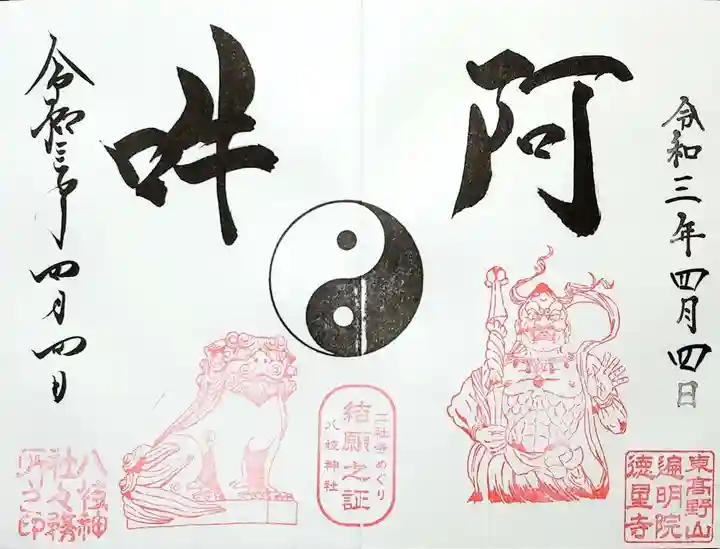 阿
令和三年四月四日
東高野山
遍明院
徳星寺
吽
令和三年四月四日
二社寺めぐり
結願之証
八枝神社
八枝神
社々務
所之印